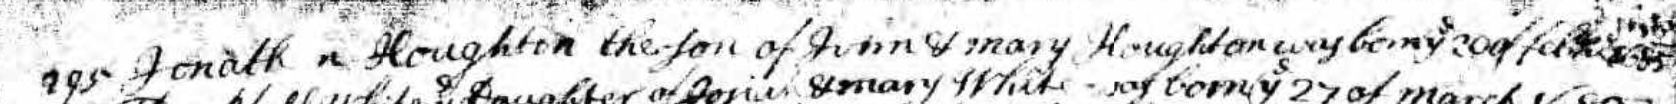 295 Jonath n Houghton the son of John & mary Houghton was born yͤ 20 of feb
Daughter of Josiah & mary White was born yͤ 27 of march